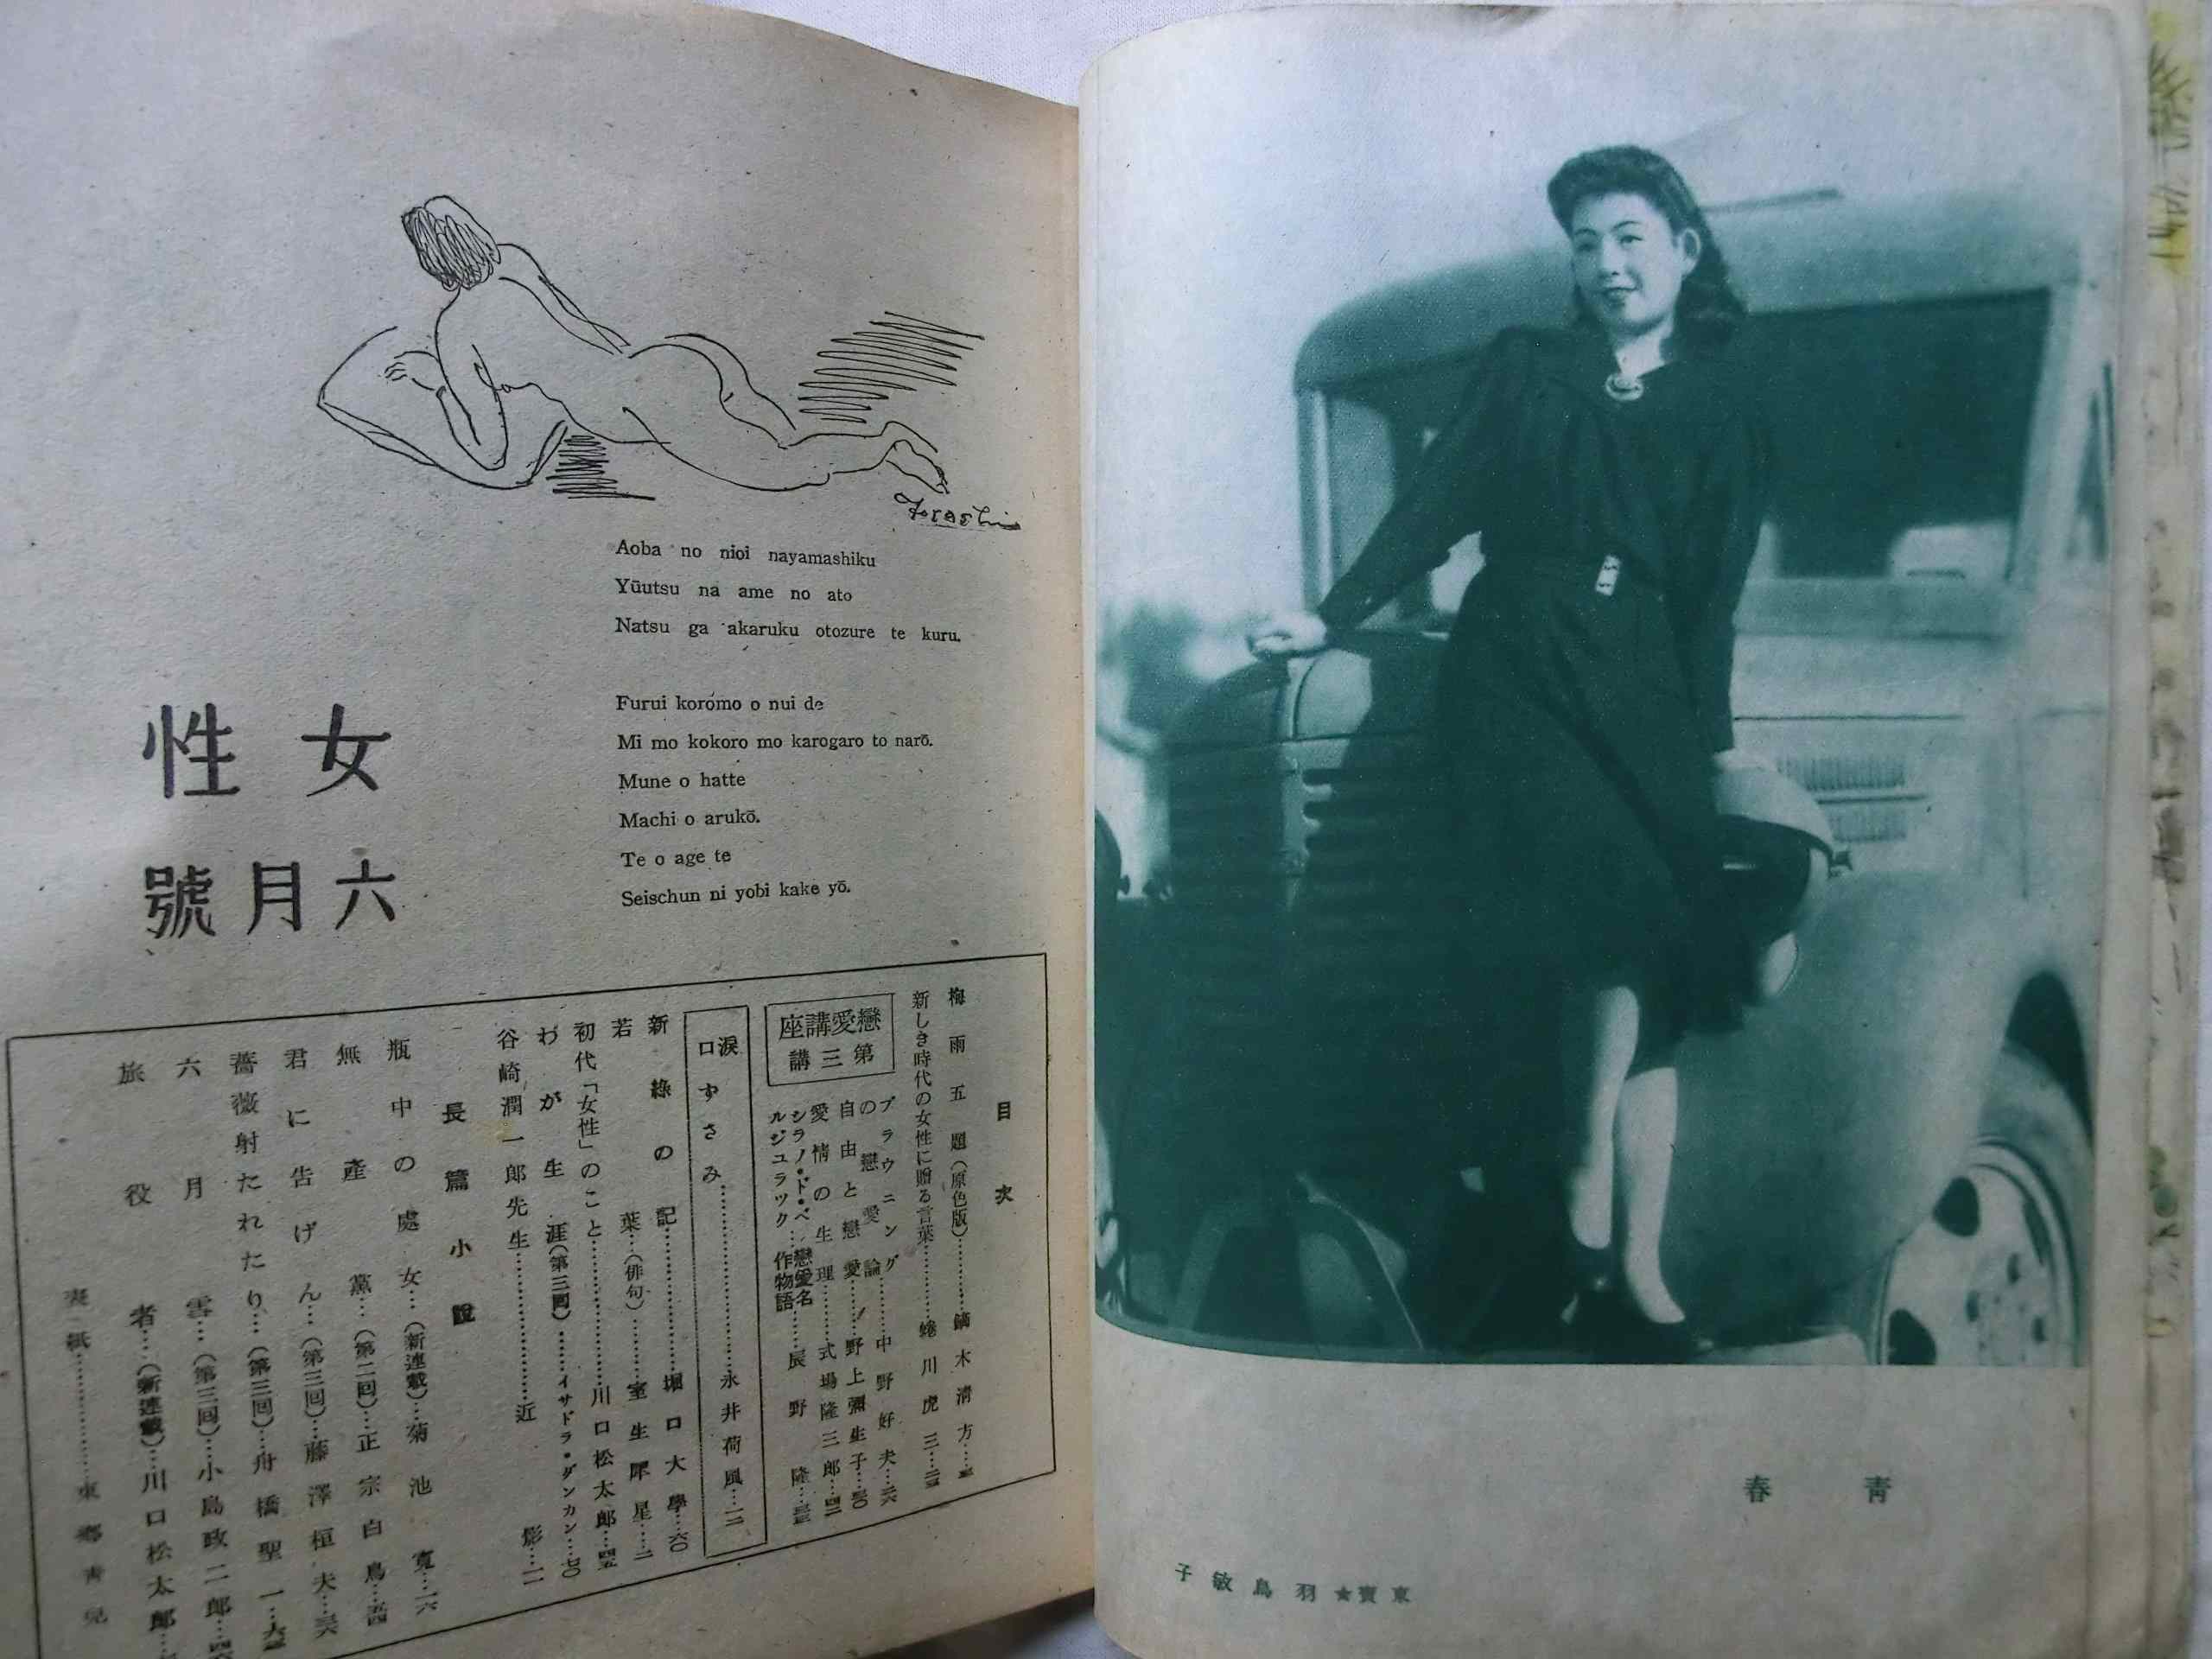 Aoba no nioi nayamashiku
Yūutsu na ame no ato
Natsu ga akaruku otozure te kuru.
Furui koromo o nui de
Mi mo kokoro mo karogaro to narō.
Mune o hatte
Machi o arukō.
Te o age te
Seischun ni yobi kake yō.
性女
號月六
目次
梅雨五題(原色版)…………鏑木清方
新しき時代の女性に贈る言葉…………蜷川虎三
座講愛戀
講三第
ブラウニングの戀愛論…………中野好夫…二六
自由と戀愛……野上彌生子…三〇
愛情の生理…………式場隆三郎
シラノ・ド・ベルジユラツク……戀愛名作物語……辰野隆
涙口ずさみ…………永井荷風…一二
新綠の記…………堀口大學…六〇
若葉…(俳句)…………室生犀星…二
初代「女性」のこと…………川口松太郎
わが生涯(第三囘)…………イサドラ・ダンカン…七〇
谷崎潤一郎先生…………近影…一一
長篇小說
瓶中の處女…(新連載)…菊池寬…一六
無產黨…(第二囘)…正宗白鳥…五四
君に告げん…(第三囘)…藤澤桓夫…三六
薔薇射たれたり…(第三囘)…舟橋聖一
六月雲…(第三囘)…小島政二郎
旅役者…(新連載)…川口松太郎
表紙…………東鄕靑兒
春靑
子敏鳥羽★寶東